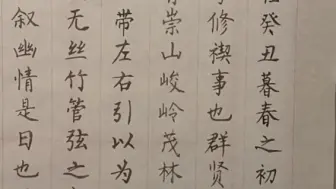 癸丑暮春之初
修禊事也群贤
崇山峻岭茂林
带左右引以为
无丝竹管弦之
叙幽情是日也